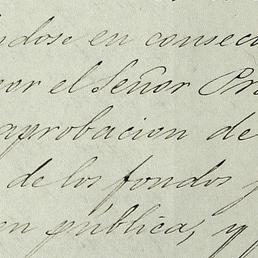 ndose en consecu
por el Señor Pr
aprobacion de
de los fondos
en pública, y